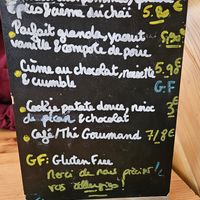 crème du chai 5.80€
Parfait granola, yaourt
vanille & compote de poire
Crème au chocolat, noisette 5.9€
& crumble G.F
Cookie patate douce, noix 3€
de pécan & chocolat
Café/Thé Gourmand 7/8€
GF: Gluten Free
Merci de nous préciser
vos allergies!